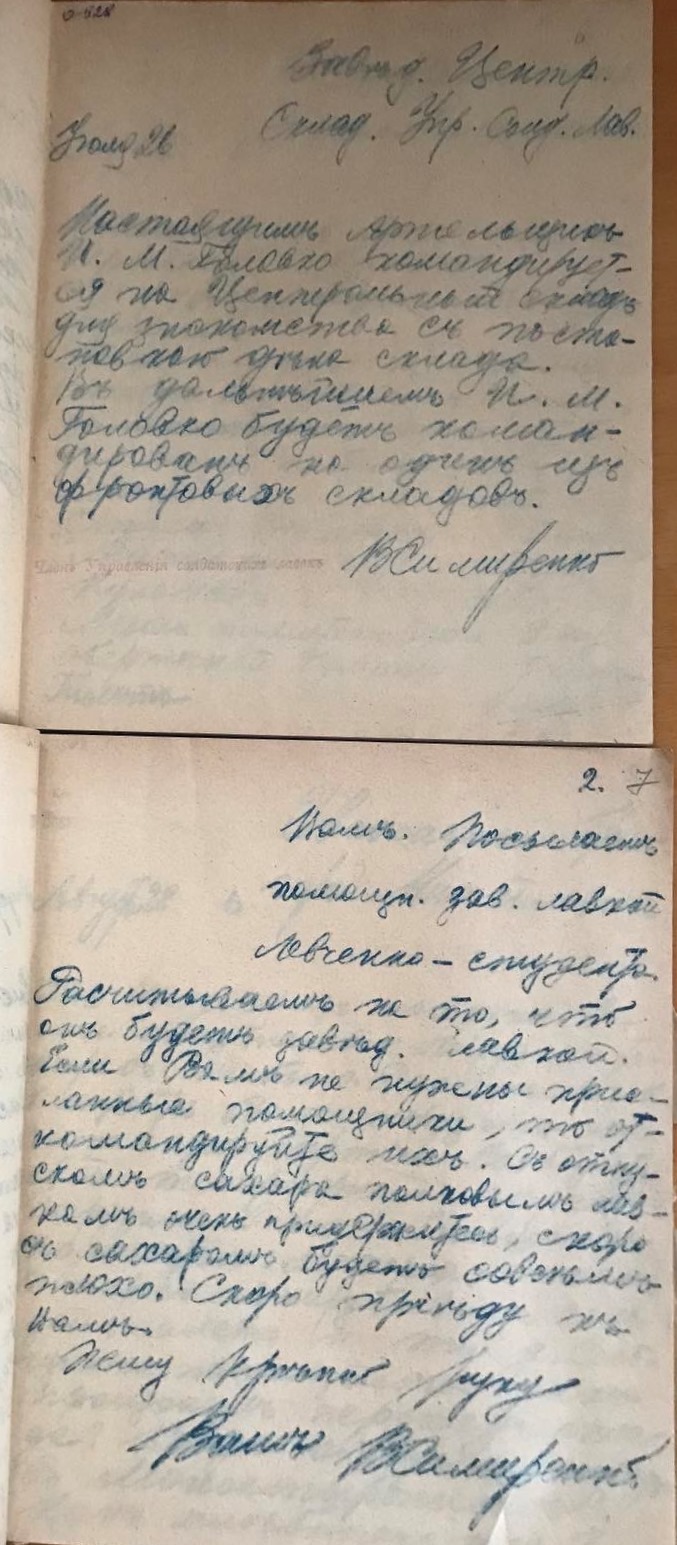 Завѣд. Центр.
Склад. Упр. Солд. Лав.
Настоящимъ Артельщикъ
И. М. Головко командирует-
ся на Центральный складъ
для знакомства съ поста-
новкой дѣла склада.
Въ дальнѣйшемъ И. М.
Головко будетъ коман-
дированъ на одинъ изъ
фронтовыхъ складовъ.
Членъ Управленія солдатскихъ лавокъ
ВСимиренко
2. 7
Вамъ. Посылаемъ
помощн. зав. лавкой
Левченко - студента.
Расчитываемъ на то, что
онъ будетъ завѣд. лавкой.
Если Вамъ не нужены прис-
ланные помощники, то от-
командируйте ихъ. Съ отпу-
скомъ сахара полковымъ лав-
камъ очень придержитесь, скоро
съ сахаромъ будетъ совсѣмъ
плохо. Скоро пріѣду къ
Вамъ.
Жму крѣпко руку
Вашъ ВСимиренко